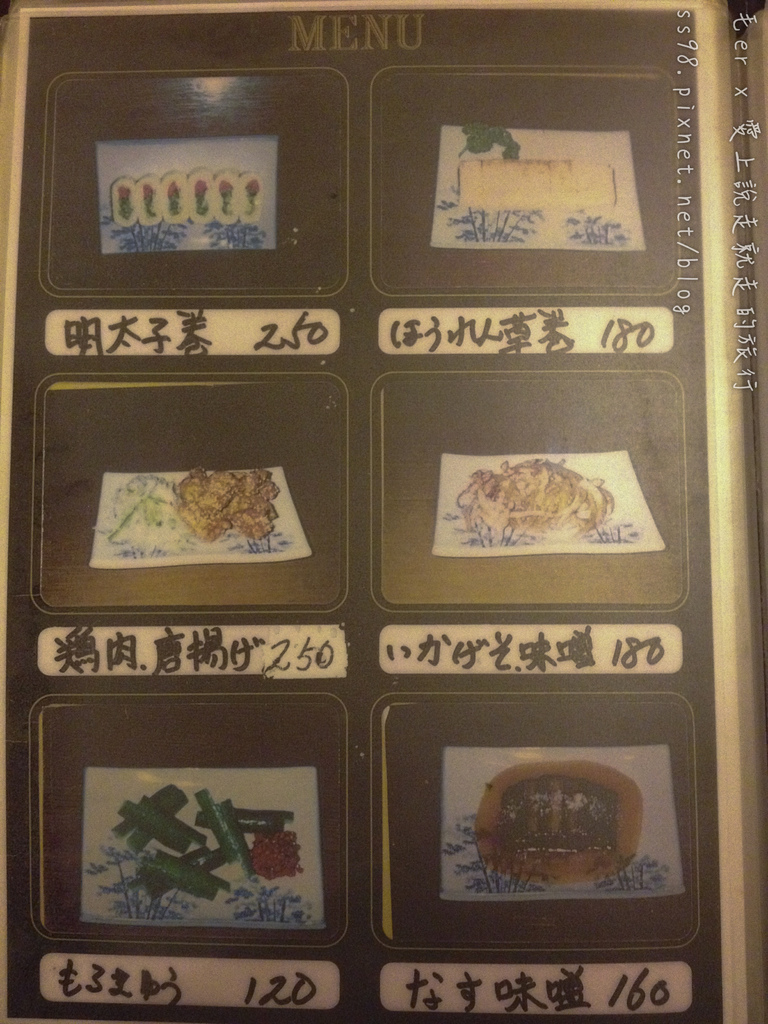 MENU
明太子巻 250
ほうれん草巻 180
鶏肉.唐揚げ 250
いかげそ味噌 180
もろきゅう 120
なす味噌 160
毛er x 愛上說走就走的旅行
ss98.pixnet.net/blog